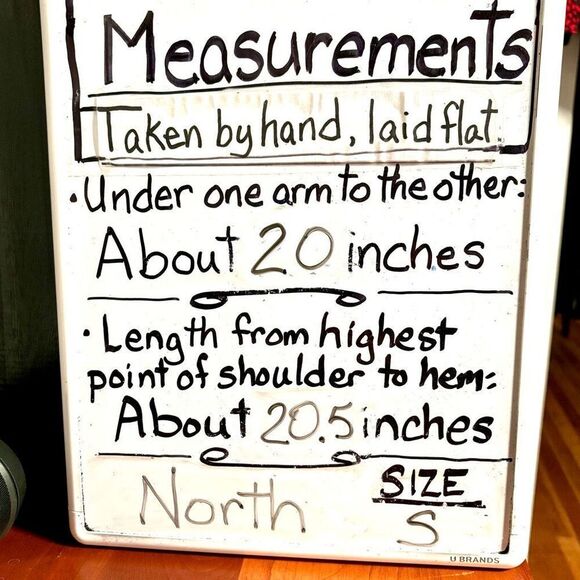 Measurements
Taken by hand, laid flat.
· Under one arm to the other:
About 20 inches
· Length from highest
point of shoulder to hem:
About 20.5 inches
North
SIZE
S
U BRANDS